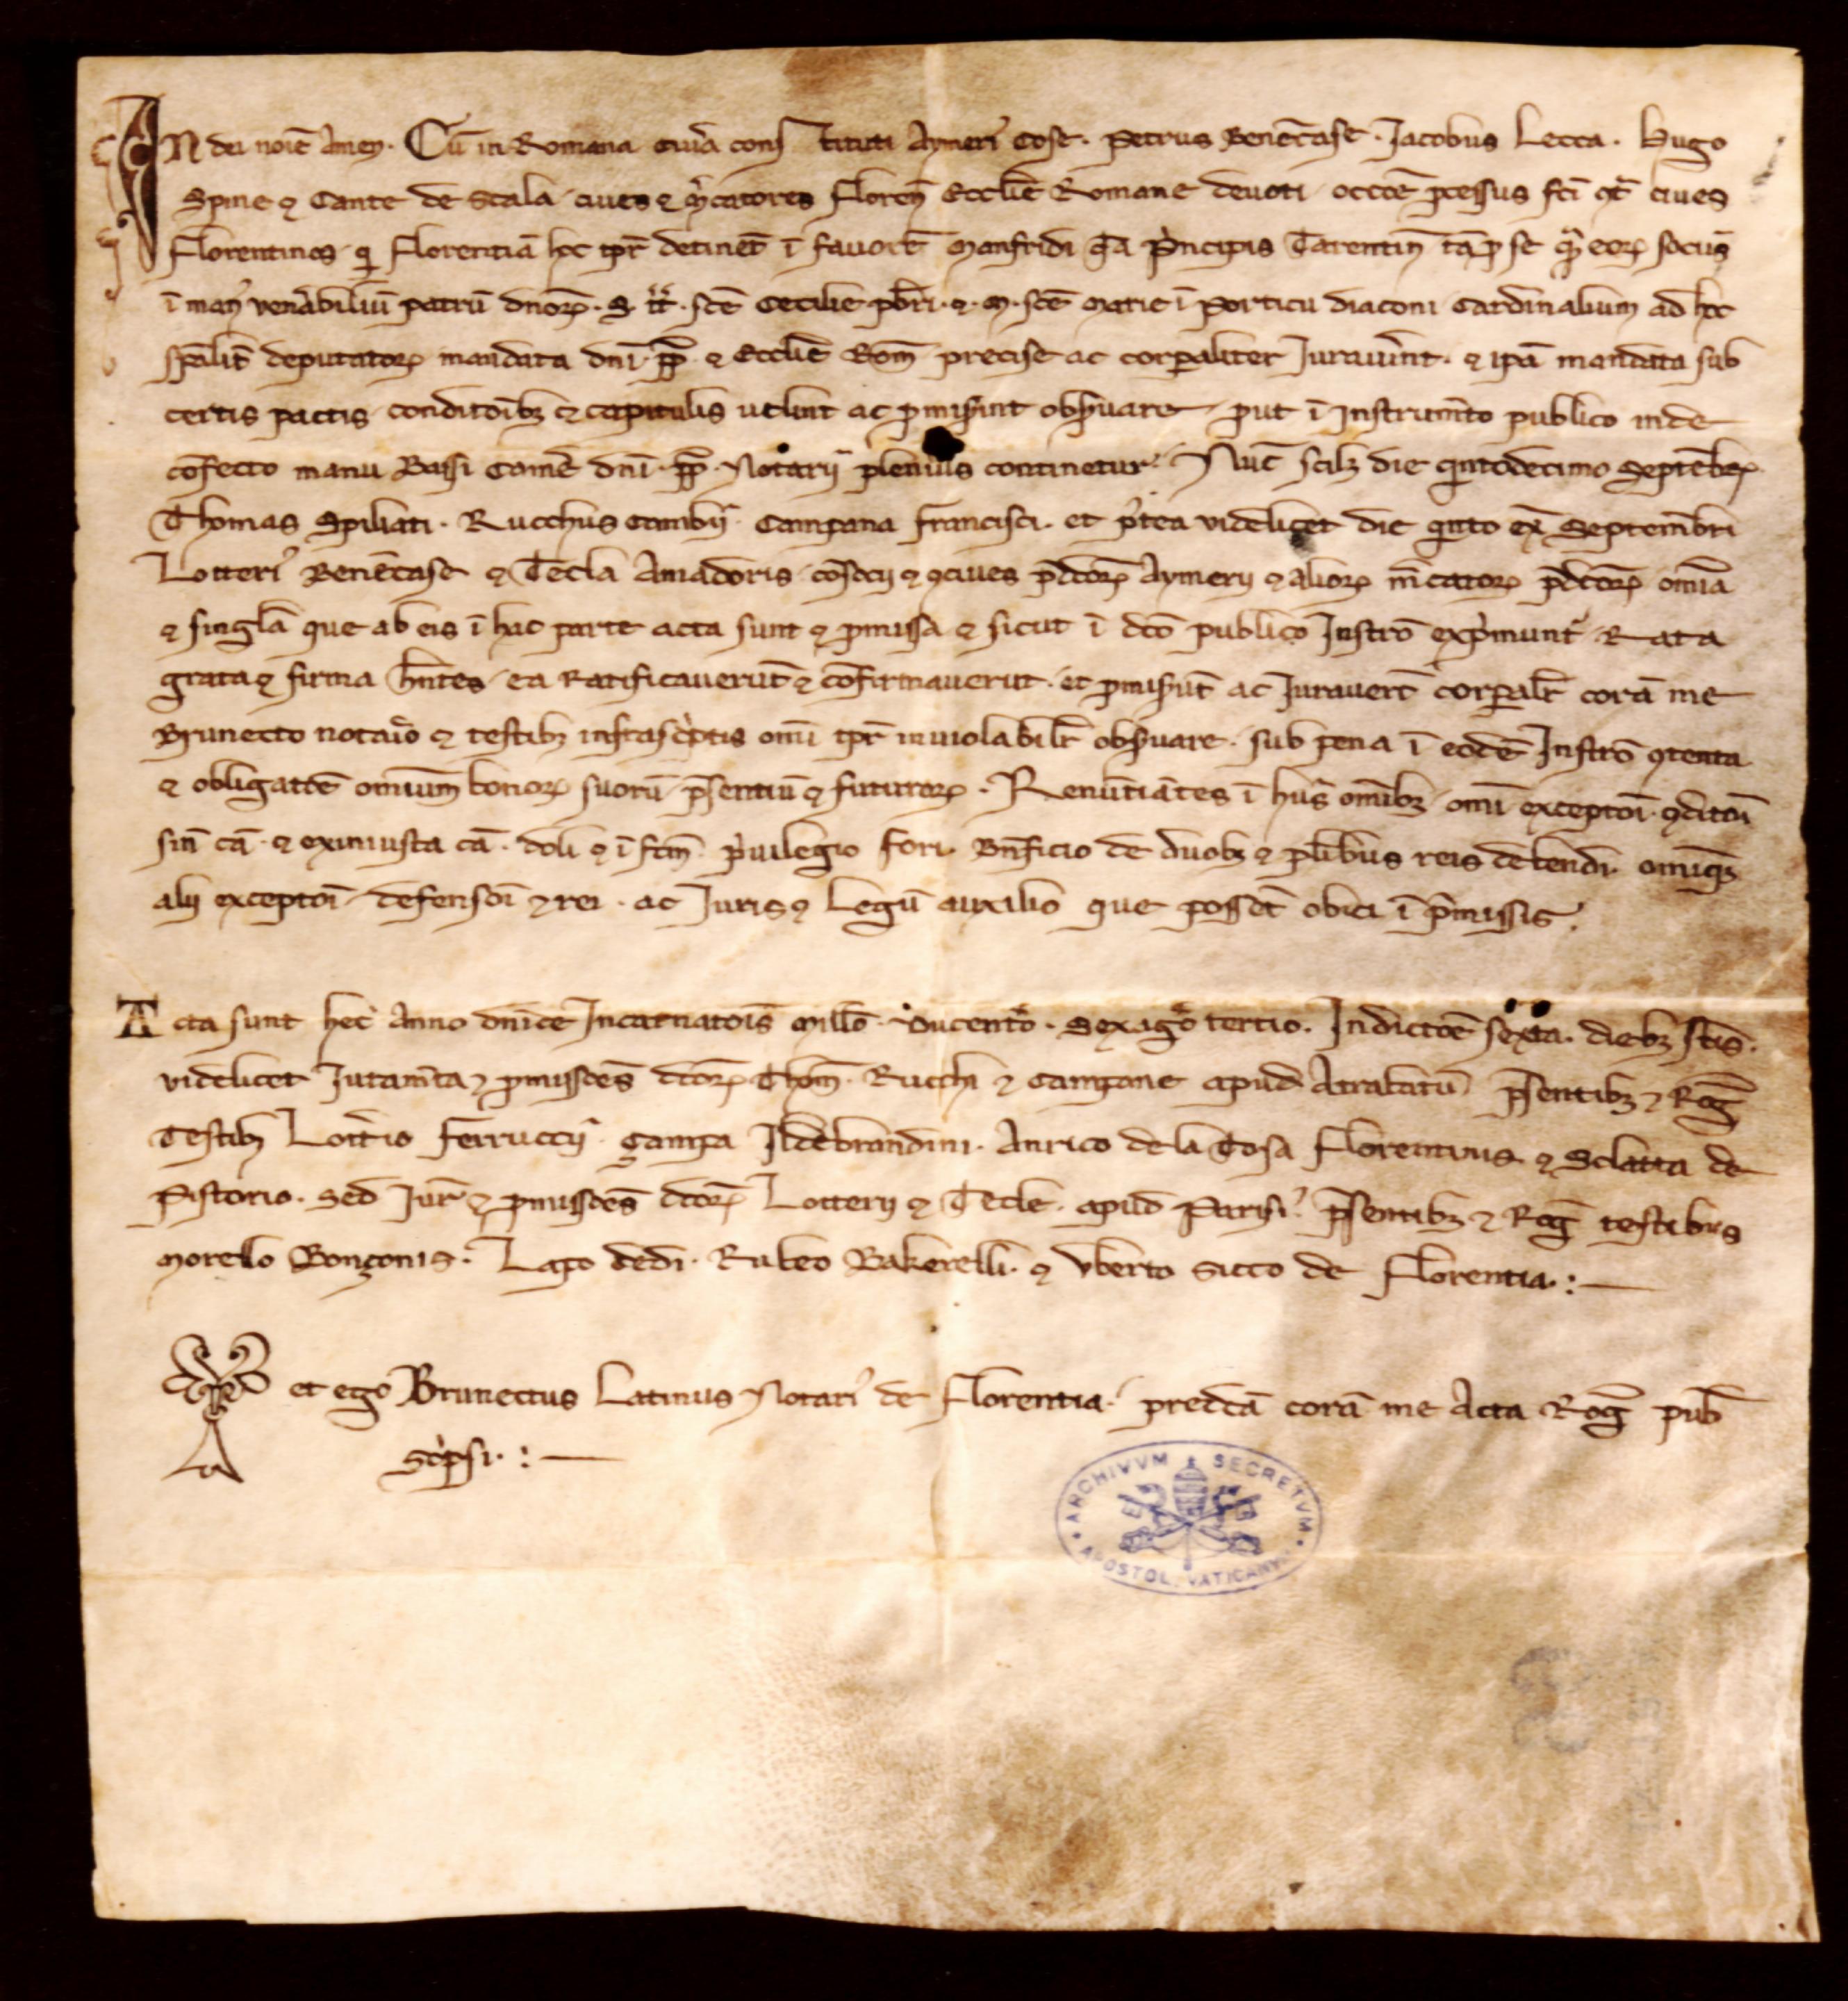 IN dei noīe Amen. Cū in Romana curia constituti Aymeri Cose. Petrus Benēcase. Jacobus Lecca. Hugo
Spine ⁊ Cante de Scala ciues ⁊ m̄catores Floren̄ Ecclīe Romane deuoti occōe p̄cessus fc̄i ꝯt̄ ciues
Florentinos q̄ Florentiā hoc tp̄r detinēt ī fauorē Manfridi q̄a P̄ncipis Tarentin̄ tā ꝓ se q̄ eoꝝ sociis
ī man̄ venerabiliū patrū dn̄oꝝ. S. tt̄. sc̄e Cecilie pb̄ri. ⁊. M. sc̄e Marie ī Porticu diaconi Cardinalium ad hoc
sp̄alit̄ deputatoꝝ mandata dn̄i pp̄ ⁊ Ecclīe Rom̄ precise ac corꝑaliter Jurauer̄nt. ⁊ ip̄a mandata sub
certis pactis conditōibꝫ ⁊ capitulis uelint ac ꝓmiser̄nt obẜuare ꝓut ī Instrum̄to publico inde
cōfecto manu Bassi Camē dn̄i pp̄ Notarij plenius continetur. Nūc scilꝫ die quītodecimo Septēbꝝ
Thomas Spiliati. Rucchus Cambij. Campana Francisci. et p̄tea videlicet die quīto ex̄ Septembri
Lotteri Benēcase ⁊ Tecla Amadoris cōsocij ⁊ ꝯciues p̄dc̄oꝝ Aymerij ⁊ alioꝝ m̄catoꝝ p̄dc̄oꝝ omīa
⁊ singl̄a que ab eis ī hac parte acta sunt ⁊ ꝓmissa ⁊ sicut ī dc̄o publico Instrō exp̄munt᷑ Rata
grata ⁊ firma hn̄tes ea Ratificauerūt ⁊ cōfirmauerūt. et ꝓmiser̄t ac Jurauer̄t corꝑalr̄ corā me
Brunecto notario ⁊ testibꝫ infrascriptis omī tp̄r inuiolabilr̄ obẜuare. sub pena ī eodē Instrō ꝯtenta
⁊ obligatōe omīum bonoꝝ suoꝝ p̄sentiū ⁊ futuroꝝ. Renūtiātes ī hiis omībꝫ omī exceptōi ꝯditōi
sin̄ cā ⁊ ex iniusta cā. doli ⁊ ī fc̄m. p̄uilegio fori. Bn̄ficio de duobꝫ ⁊ pl̄ibus reis debendi. omīqꝫ
alij exceptōi defensōi ⁊ rei. ac Juris ⁊ Legū auxilio que possēt obici ī p̄missis.
Acta sunt hec Anno dn̄ice Incarnatōis Mill̄o. Ducentō. Sexagō tertio. Indictōe sexta. diebꝫ st̄is.
videlicet Juram̄ta ⁊ ꝓmissōes dc̄oꝝ Thom̄. Rucchi ⁊ Campane apud Atrabatū p̄sentibꝫ ⁊ Roḡ
Testibꝫ Lotterio Ferruccij. Gampa Ildebrandini. Anrico de la Tosa Florentinis ⁊ Sclatta de
Pistorio. Sed Jur̄ ⁊ ꝓmissōes dc̄oꝝ Lotterij ⁊ Tecle. apud Parisi. p̄sentibꝫ ⁊ Roḡ testibus
Morello Bonçonis. Lapo Bedi. Rubeo Bakerelli. ⁊ Vberto Sicco de Florentia. : —
et ego Brunectus Latinus Notari de Florentia. predc̄a corā me Acta Roḡ pub̄
Scripsi. : —
ARCHIVVM SECRETVM
APOSTOL. VATICANVM